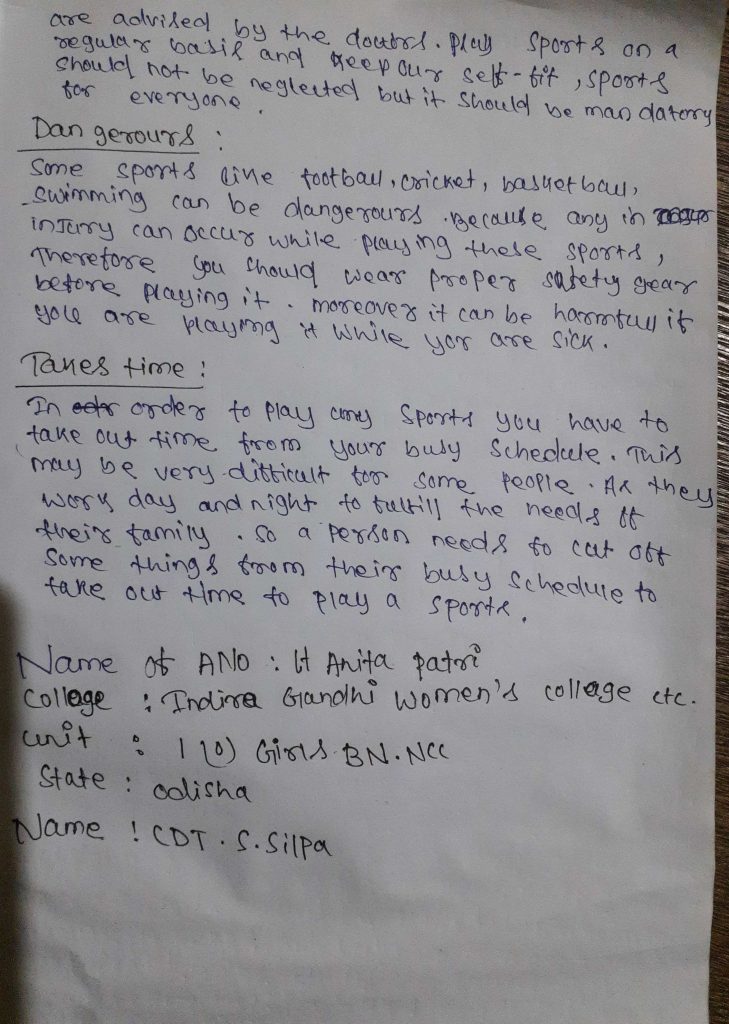 are advised by the doctors. Play sports on a
regular basis and keep our self-fit, sports
should not be neglected but it should be mandatory
for everyone.
Dangerours :
Some sports like football, cricket, basketball,
Swimming can be dangerours. Because any in
injury can occur while playing these sports,
Therefore you should wear proper safety gear
before playing it. moreover it can be harmfull if
you are playing it while you are sick.
Takes time :
In order to play any sports you have to
take out time from your busy schedule. This
may be very difficult for some people. As they
work day and night to fulfill the needs of
their family. So a person needs to cut off
Some things from their busy schedule to
take out time to play a sports.
Name of ANO : Lt Anita patri
College : Indira Gandhi Women's college ctc.
Unit : 1 (O) Girls BN. NCC
State : odisha
Name : CDT. S. Silpa